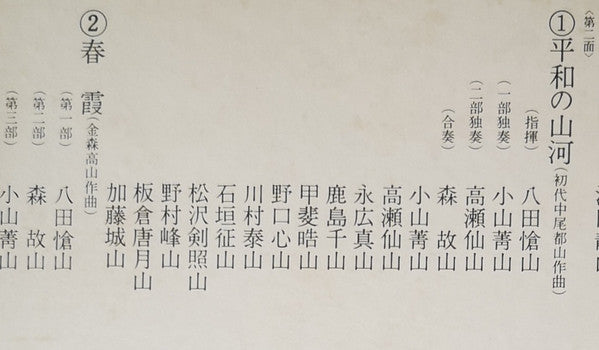 〈第二面〉
①平和の山河(初代中尾都山作曲)
(指揮) 八田愴山
(一部独奏) 小山菁山
(二部独奏) 高瀬仙山
(合奏) 森故山
小山菁山
高瀬仙山
永広真山
鹿島千山
甲斐晧山
野口心山
川村泰山
石垣征山
松沢剣照山
野村峰山
板倉唐月山
加藤城山
②春霞(金森高山作曲)
(第一部) 八田愴山
(第二部) 森故山
(第三部) 小山菁山